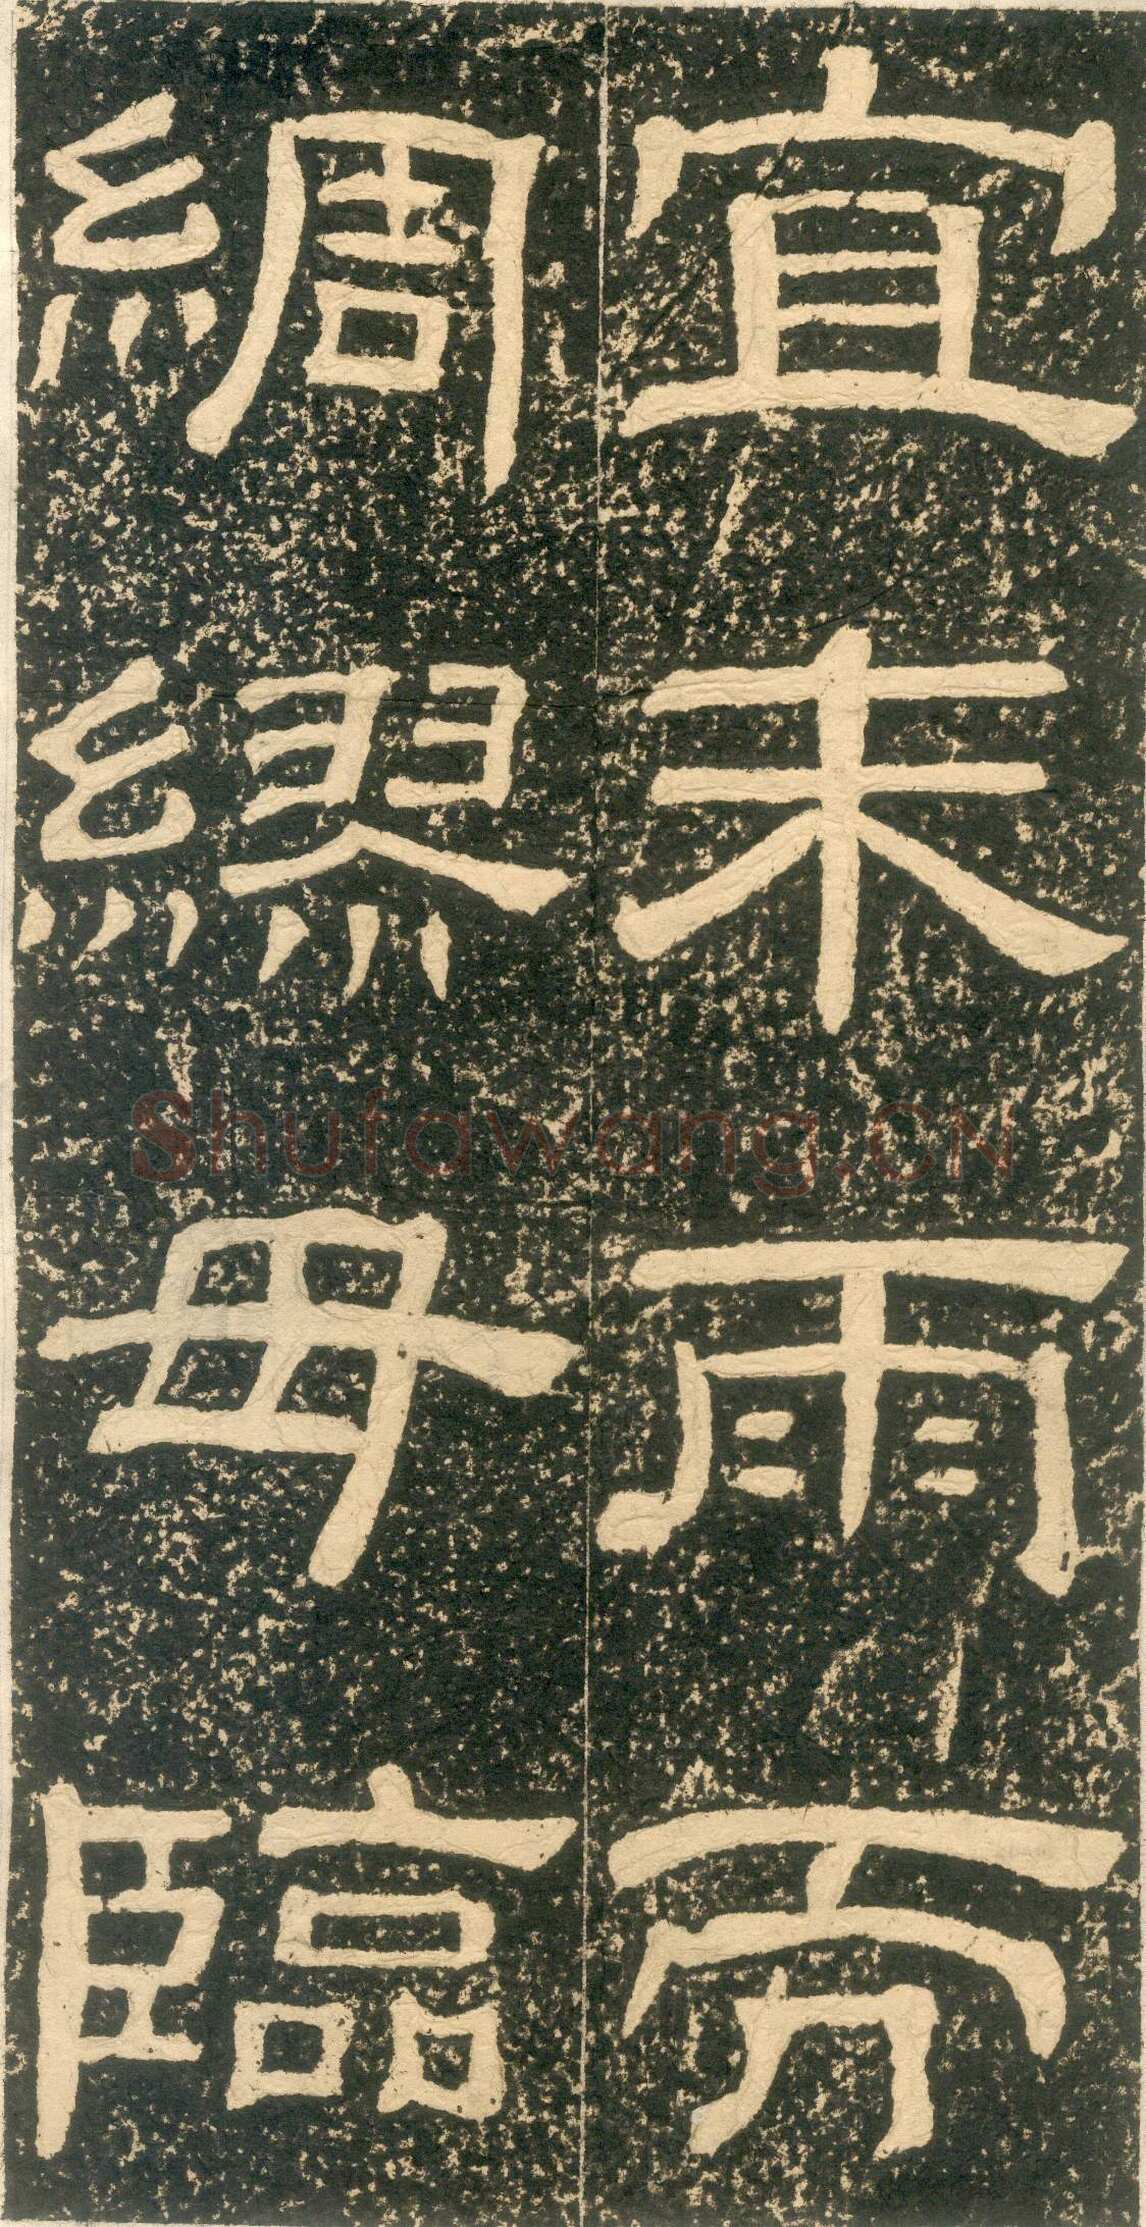 宜未雨而
綢繆毋臨
Shufawang.CN